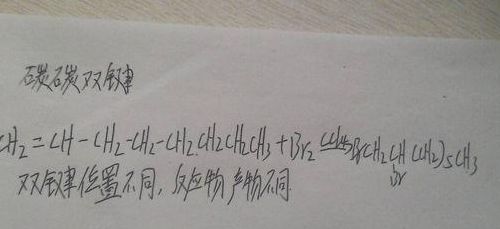 碳碳双键
CH2=CH-CH2-CH2-CH2CH2CH2CH3+Br2 CCl4 BrCH2CH(CH2)5CH3
Br
双键位置不同，反应物产物不同.